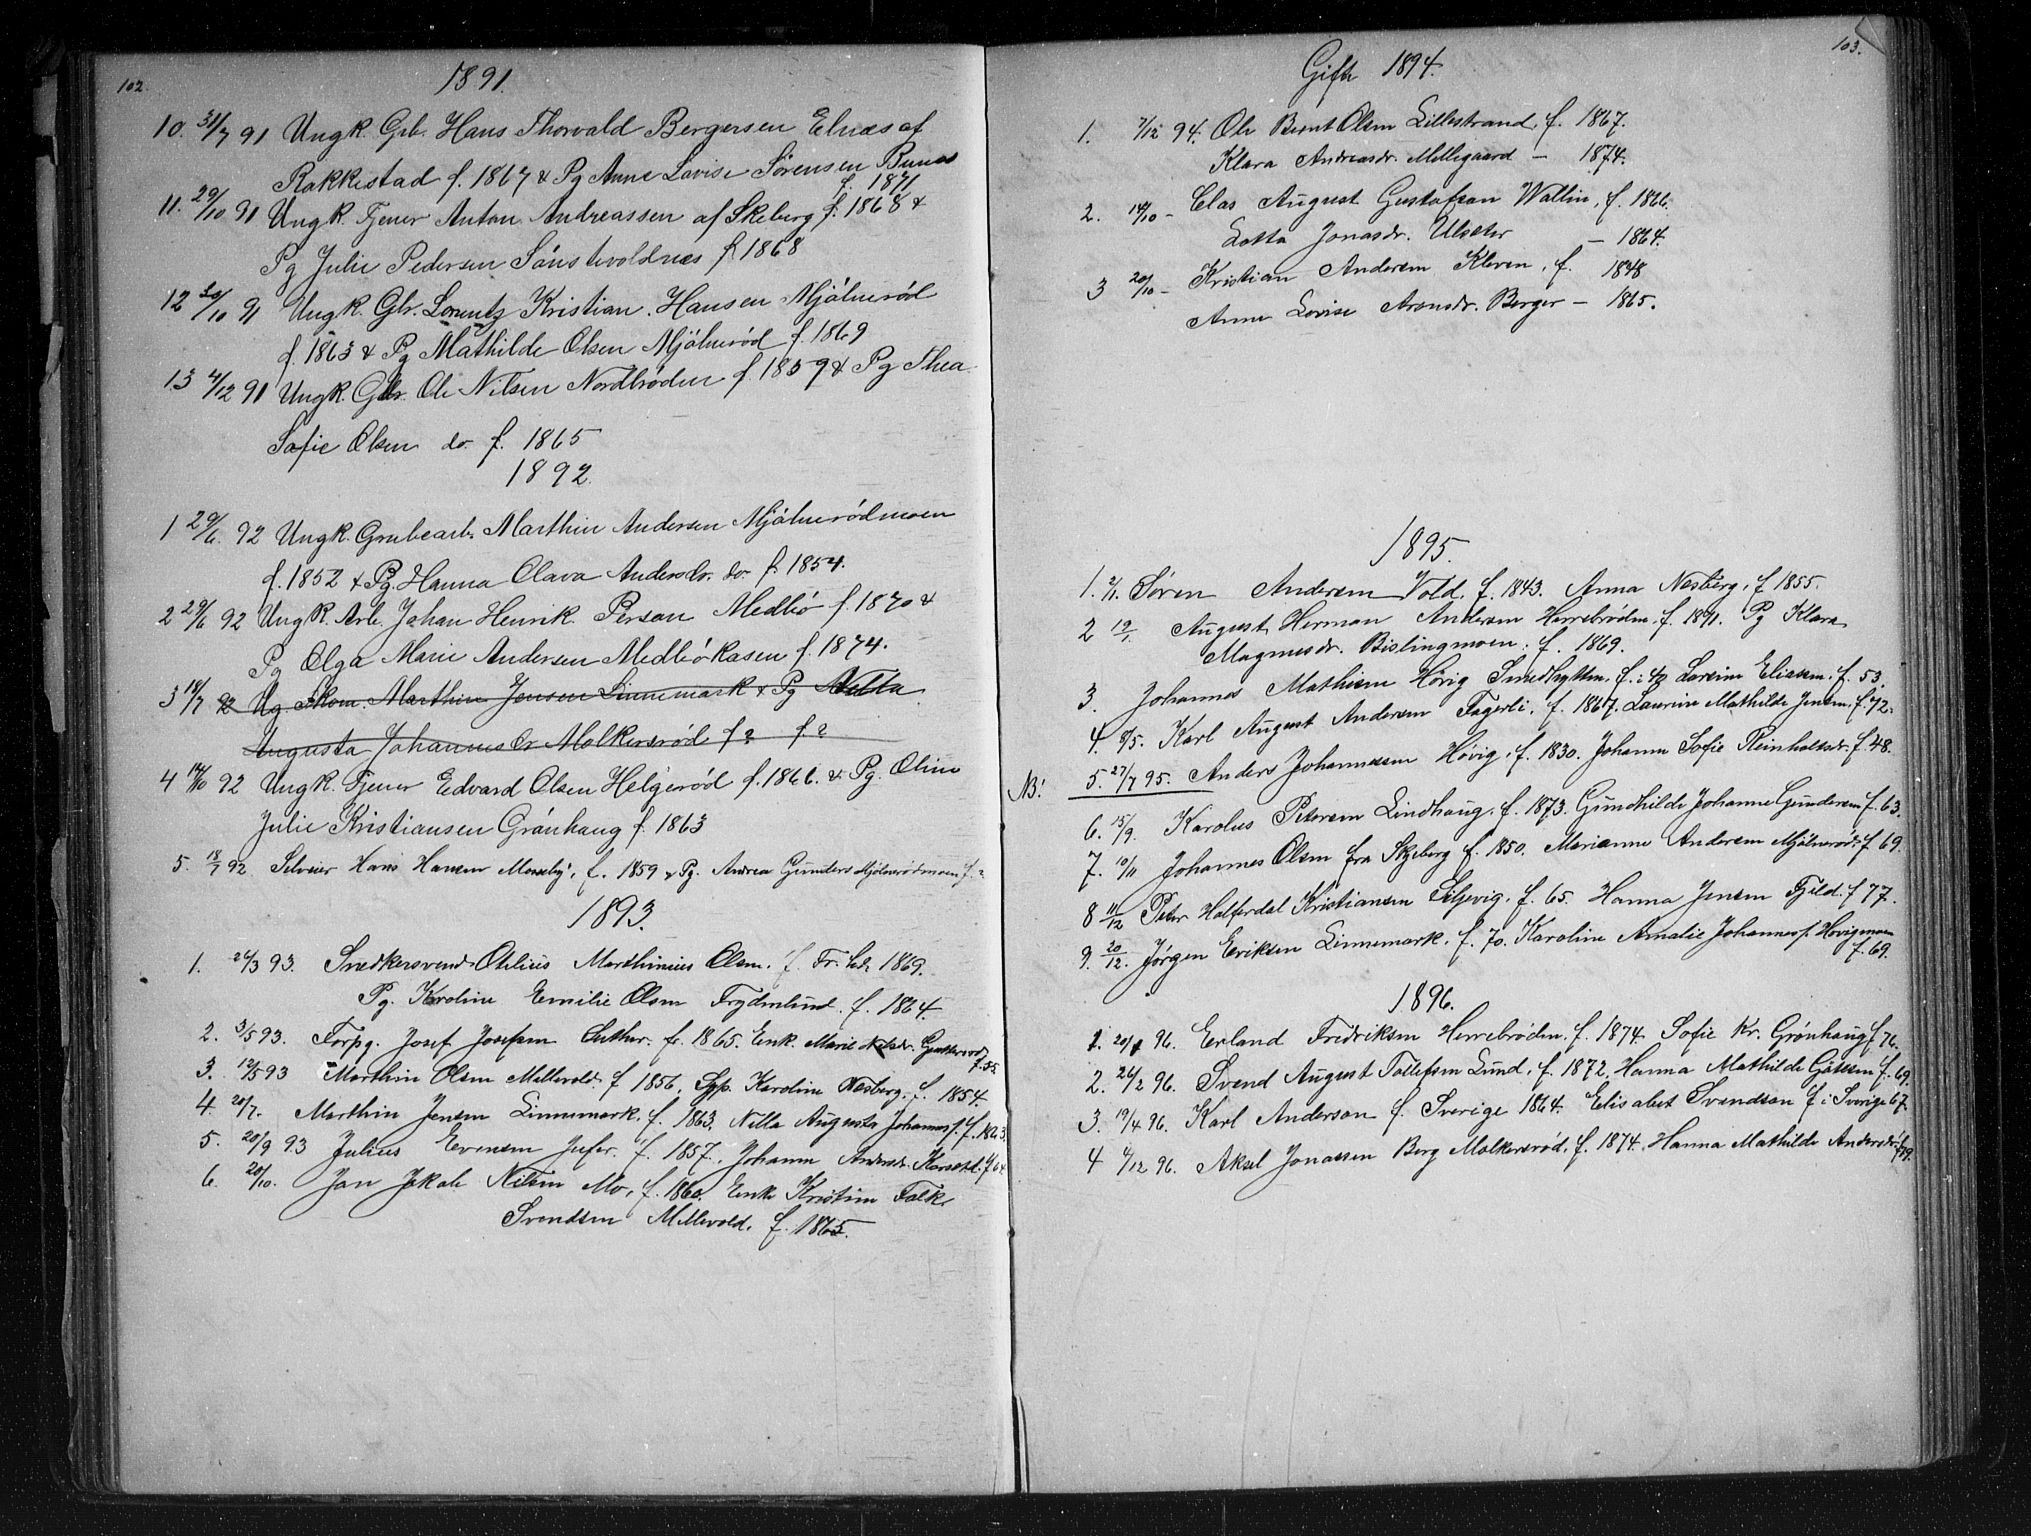 102.
1891.
10. 31/7 91 Ungk. Grb. Hans Thorvald Bergersen Elnæs af
Rakkestad f. 1867 & Pg Anne Lovise Sørensen Bunæs
f. 1871
11. 29/10 91 Ungk. Tjener Anton Andreassen af Skeberg f. 1868 &
Pg Julie Pedersen f. 1868
12 30/10 91 Ungk. Gbr. Lorentz Kristian Hansen Mjölnerød
f. 1863 & Pg Mathilde Olsen Mjölnerød f. 1869
13 4/12 91 Ungk. Gbr. Ole Nilsen Nordbröden f. 1859 & Pg Thea
Sofie Olsen do. f. 1865
1892.
1 29/6 92 Ungk. Grubearb. Marthin Andersen Mjölnerødmoen
f. 1852 & Pg. Hanna Olava Andersdr. do. f. 1854.
2 29/6 92 Ungk. Arb. Johan Henrik Person Medbö f. 1870 &
Pg Olga Marie Andersen Medbökasen f. 1874.
3 18/7 92 Ug. Skom. Marthin Jensen Linnemark & Pg Nilla
Augusta Johannesdr Molkersrød f ? f ?
4 14/10 92 Ungk. Tjener Edvard Olsen Helgerød f. 1866. & Pg. Oline
Julie Kristiansen Grönhaug f. 1863
5. 18/7 92. Selveier Hans Hansen Mosseby, f. 1859 & Pg. Andrea Gunders Mjölnerødmoen f. ?
1893.
1. 24/3 93. Snedkersvend Otilius Marthinius Olsen. f. Fr.hald 1869.
Pg. Karoline Emilie Olsen Frydenlund f. 1864.
2. 3/5 93. Torpg. Josef Josefsen Buther. f. 1865. Enk. Marie Nilsdr.
f. 55.
3. 12/5 93 Marthin Olsen Mellevold f. 1856, Karoline Nesberg. f. 1854.
4. 20/7. Marthin Jensen Linnemark. f. 1863. Nilla Augusta Johannesf. f. 1863.
5. 20/9 93 Julius Evensen f. 1857. Johanne Andersdr. f. 64
6. 20/10. Jan Jakob Nilsen Mo, f. 1860. Enke Kristine Falk
Svendsen Mellevold. f. 1865.
103.
Gifte 1894.
1. 7/12 94. Ole Bernt Olsen Lillestrand, f. 1867.
Klara Andreasdr. Mellegaard – 1874.
2. 14/10 – Clas August Gustafson Wallin, f. 1866.
Lotta Jonasdr. Ulseter – 1864.
3 20/10 – Kristian Andersen Kleven, f. 1848
Anne Lovise Aronsdr. Berger – 1865.
1895.
1. 2/1. Søren Andersen Vold. f. 1843. Anna Nesberg, f 1855.
2 19/1. August Herman Andersen Herrebrøden, f. 1871. Pg Klara
Magnusdr. Bislingmoen. f. 1869.
3. Johannes Mathisen Hövig Smedhytten, f. Laurine Eliassen f. 53.
4. 8/5. Karl August Andersen Fagerli, f. 1867. Laurine Mathilde Jensen, f. 72.
NB! 5. 27/7 95. Anders Johannessen Hövig, f. 1830. Johanne Sofie Reinholtsdr. f. 48.
6. 15/9. Karolus Petersen Lindhaug, f. 1873. Gundhilde Johanne Gundersen f. 63.
7. 10/11 Johannes Olsen fra Skjeberg f. 1850. Marianne Andersen Mjölnerød f 69.
8 11/12 Peter Holferdal Kristiansen Siljevig. f. 65. Hanna Jensen Fjeld. f 77.
9. 20/12. Jørgen Eriksen Linnemark, f. 70. Karoline Amalie Johannesf. Hovigmoen
f. 69.
1896.
1. 20/1 96. Erland Fredriksen Herrebrøden. f. 1874. Sofie Kr. Grønhaug f 76.
2. 26/2 96. Svend August Tollefsen Lund, f. 1872, Hanna Mathilde Götesen f. 69.
3. 19/4 96. Karl Anderson f. Sverige 1864. Elisabet Svendson f i Sverige 67.
4 4/12 96. Aksel Jonassen Berg Molkersrød, f. 1874. Hanna Mathilde Andersdr. f 79.